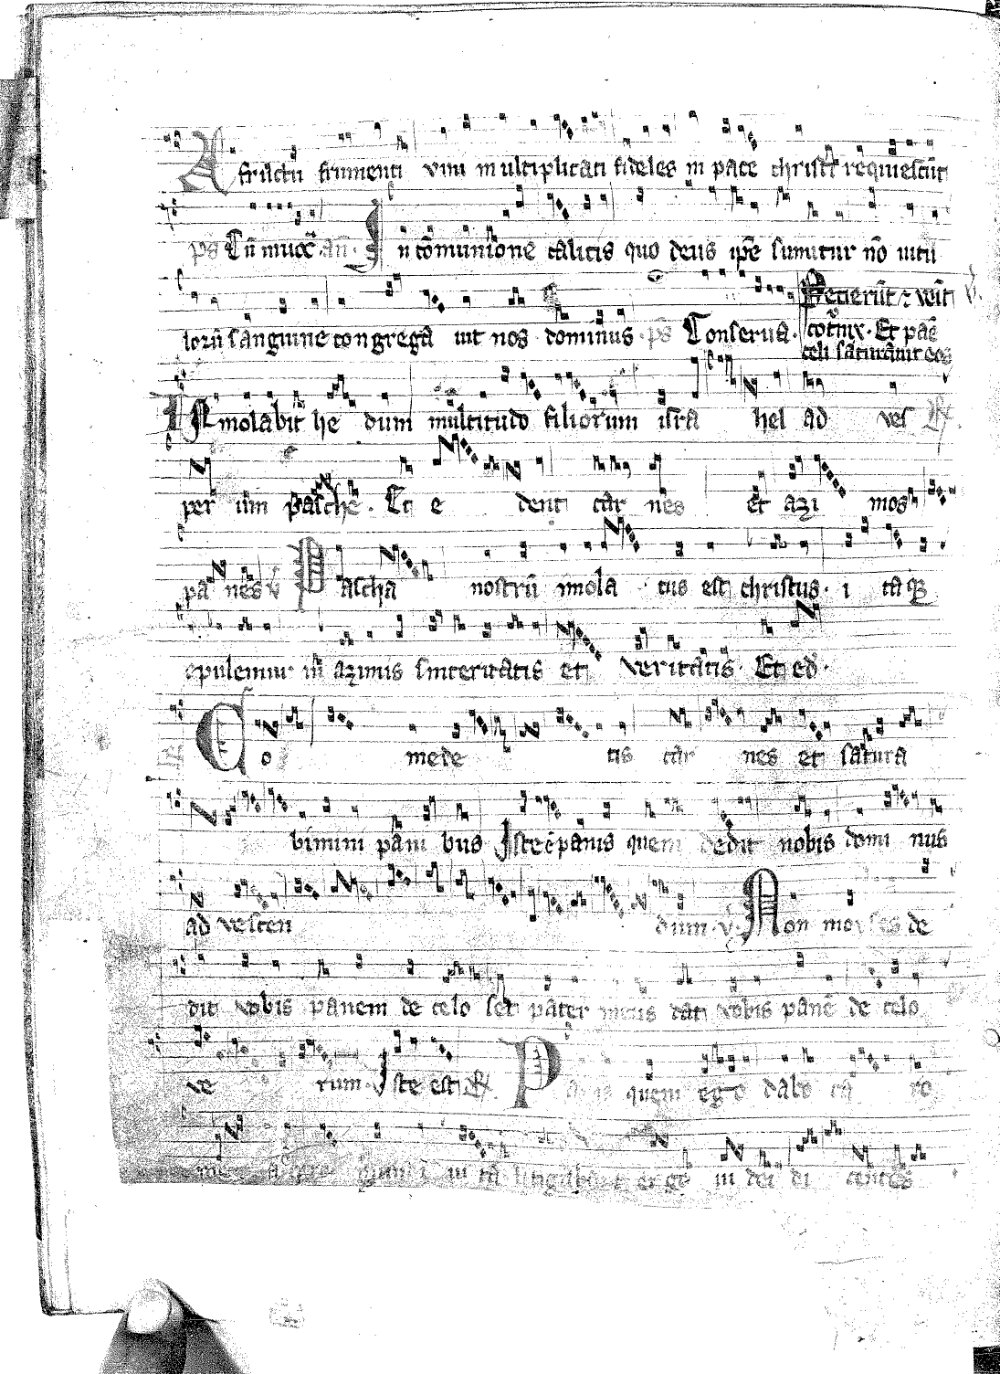 A fructu frumenti vini multiplicati fideles in pace christi requiescūt
ps Cū invocʒ an̄. In cōmunione calicis quo deus ipē sumitur nō vitu
lorū sanguine congrega vit nos dominus. ps Conserva. Petierūt ⁊ veīt
cotʾnix. Et pāe
celi saturavit eos
IMmolabit he dum multitudo filiorum isra hel ad ves R̸.
per um pasche. Et e dent car nes et azi mos
pa nes v̸ Pascha nostrū imola tus est christus. i taqȝ
epulemur in azimis sinceritatis et veritatis. Et ed.
Co mede tis car nes et satura
bimini pani bus Iste ē panis quem dedit nobis domi nus
ad vescen dum. v̸. Non moyses de
dit vobis panem de celo set pater meus dat vobis panē de celo
ve rum. Iste est R̸. Panis quem ego dabo ca ro
mea est pro mundi vi ta litigabant ergo iudei di centes